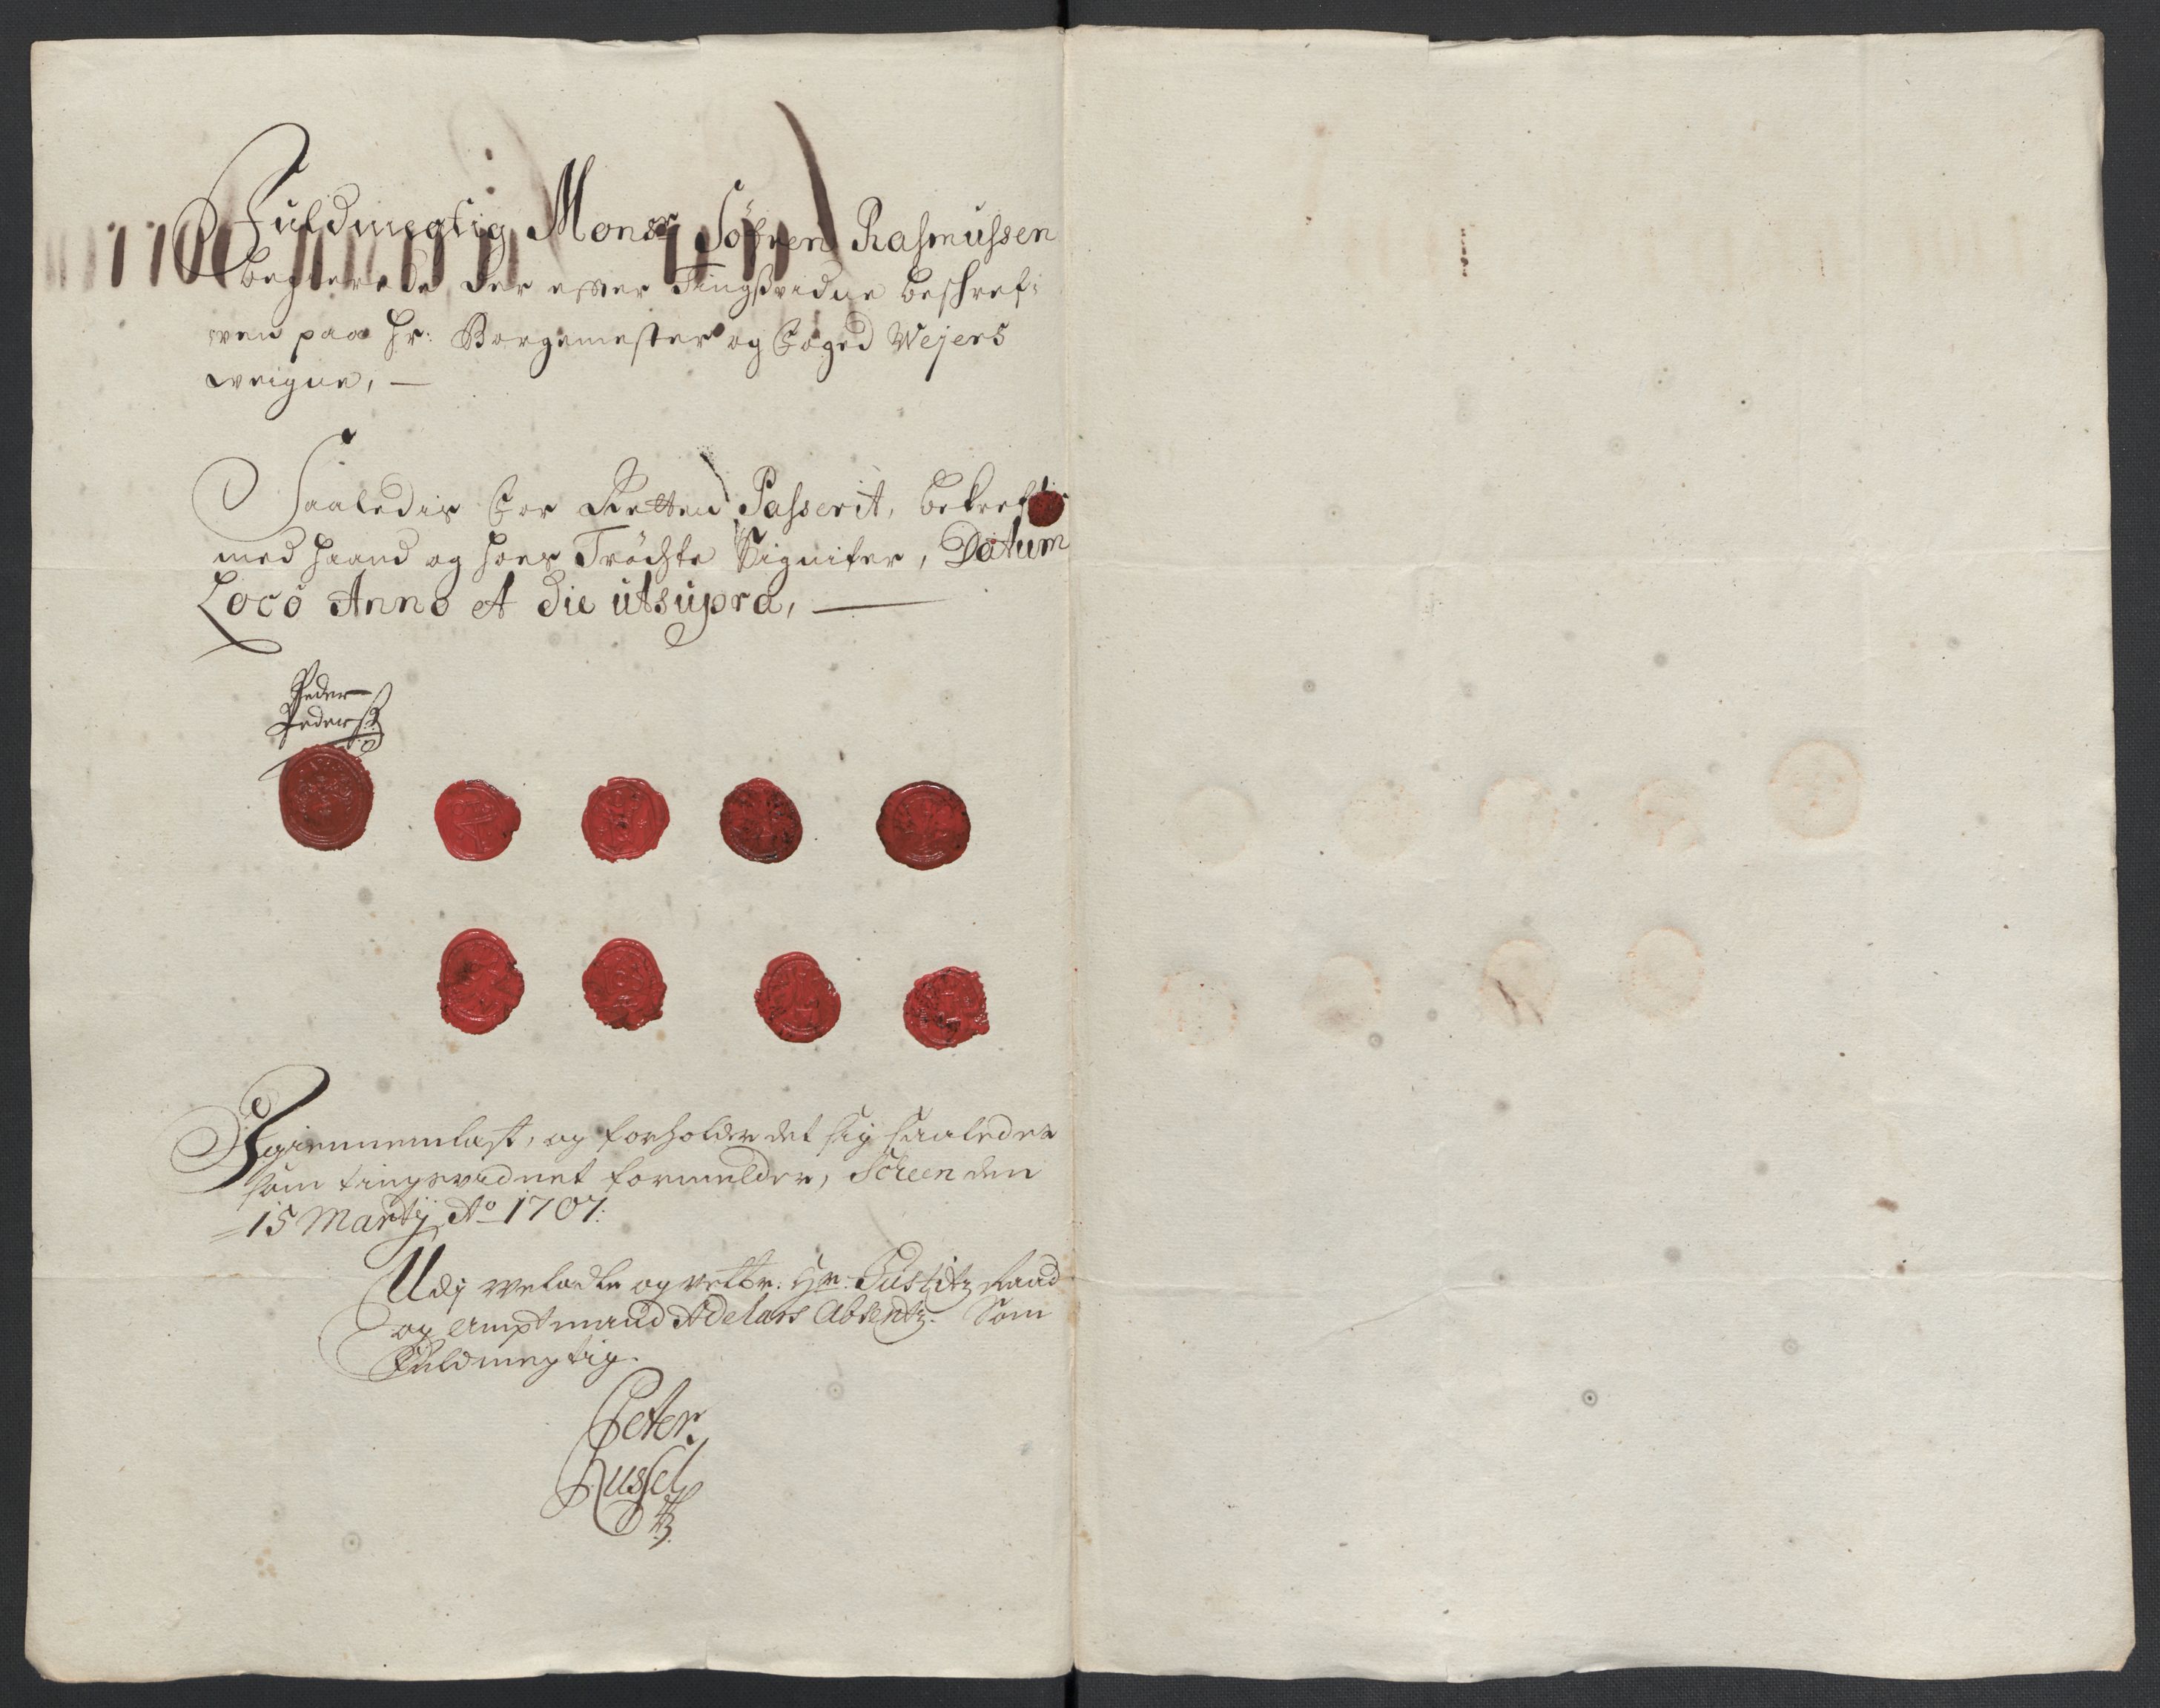 Fuldmegtig Monsr Søfren Rasmussen
begierede der efter Tingsvidne beschref:
ven paa Hr: Borgemester og Foged Wejers
weigne, —
Saaledis for Retten Passerit, bekrefter
med haand og hoes Tröchte Signiter, Datum
Loco Anno et die ut supra, —
Peder
Pederß:
Igiennemlæst, og forholder det sig saaledes
som tingsvidnet formelder, Scheen den
15 Martij Ao 1707:
Udj Hr: Justitz Raad
og Amptmand Adelars Absentz. Som
Fuldmegtig.
Peter
Russel